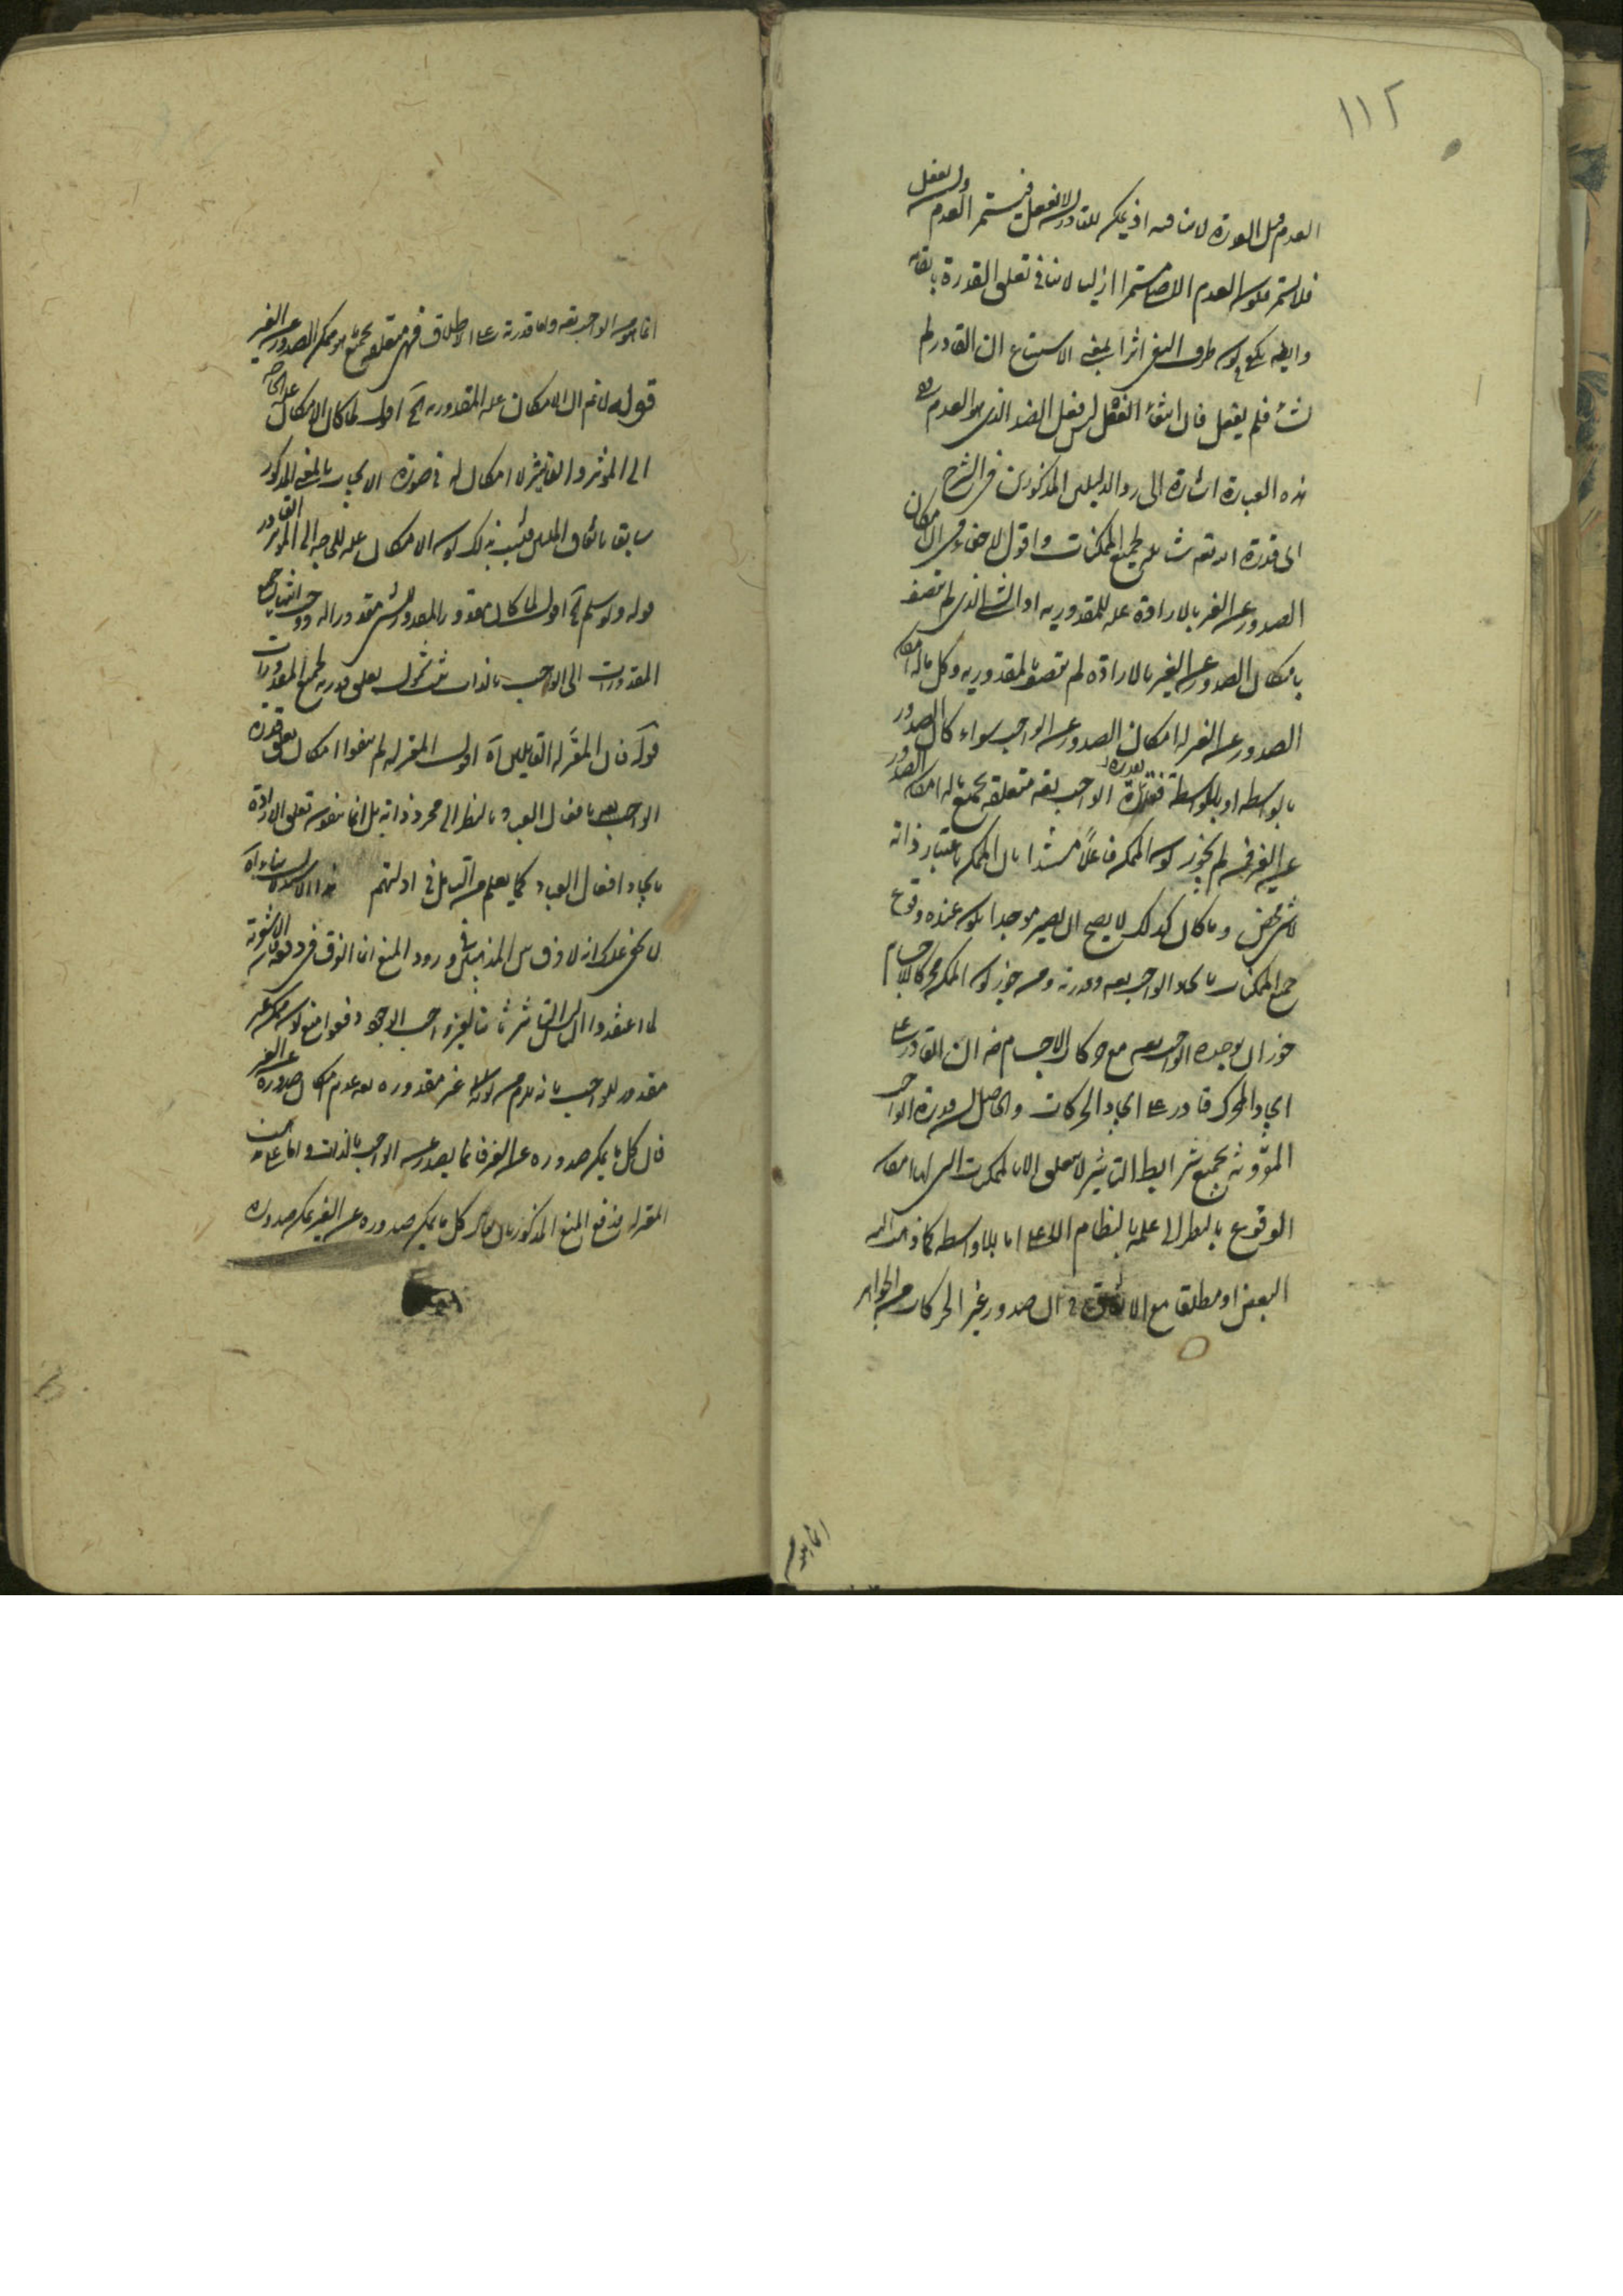 ١١٢
العدم قبل القدرة لا ينافيه اذ يمكن للقادر ان لا يفعل فيستمر العدم وان يفعل
فلا يستمر فكون العدم الاصلي مستمرا ازليا لا ينافي تعلق القدرة ببقائه
وايضا يكفي كون طرف النفي اثرا بمعنى الاستتباع ان القادر لم
يشأ فلم يفعل فان انتفاء الفعل ليس فعل الضد الذي هو العدم
هذه العبارة اشارة الى رد الدليلين المذكورين في الشرح
ان قدرة الله تعم شاملة لجميع الممكنات واقول لا خفاء في ان امكان
الصدور عن الغير بالارادة علة للمقدورية اذ الشيء الذي لم يتصف
بامكان الصدور عن الغير بالارادة لم يتصف بالمقدورية وكل ما له امكان
الصدور عن الغير له امكان الصدور عن الواجب سواء كان الصدور
بالواسطة او بلا واسطة فقدرة الواجب تعه متعلقة بجميع ما له امكان الصدور
عن الغير فمن لم يجوز كون الممكن فاعلا مستندا بان الممكن باعتبار ذاته
لا شيء محض وما كان كذلك لا يصح ان يصير موجدا يكون عنده وقوع
جميع الممكنات بايجاد الواجب تعه وقدرته ومن جوز كون الممكن محركا للاجسام
جوز ان يوجده الواجب تعه مع حركات الاجسام فان القادر على
ايجاد المحرك قادر على ايجاد الحركات والحاصل ان قدرة الواجب
المؤثرة بجميع شرايط التاثير لا تتعلق الا بالممكنات التي لها امكان
الوقوع بالنظر الى علمه بالنظام الاعلى اما بلا واسطة كما ذهب اليه
البعض او مطلقا مع الاتفاق في ان صدور غير الحركات من الجواهر
انما هو من
انما هو من الواجب تعه واما قدرته على الاطلاق فهي متعلقة بجميع ما هو ممكن الصدور عن الغير
قوله لا نم ان الامكان علة المقدورية آه اقول لما كان الامكان علة الحاجة
الى المؤثر والتاثير لا امكان له في صورة الايجاب بالمعنى المذكور
سابقا باتفاق المليين فثبت بذلك كون الامكان علة للحاجة الى المؤثر القادر
قوله ولو سلم آه اقول لما كان مقدور المقدور للشيء مقدورا له ووجب انتهاء جميع
المقدورات الى الواجب بالذات ثبت شمول تعلق قدرته لجميع المقدورات
قوله فان المعتزلة القايلين آه اقول المعتزلة لم ينفوا امكان تعلق قدرة
الواجب تعه بافعال العباد بالنظر الى مجرد ذاته بل انما ينفون تعلق الارادة
بايجاد افعال العباد كما يعلم من التامل في ادلتهم
لا يخفى عليك انه لا فرق بين المذهبين في ورود المنع انما الفرق في دفعه فان الاشعرية
لما اعتقدوا ان ليس التاثير ثابتا لغير واجب الوجود دفعوا منع كون ممكن غير
مقدور للواجب بانه يلزم كونه غير مقدور له تعه عدم امكان صدوره عن الغير
فان كل ما يمكن صدوره عن الغير فانما يصدر عن الواجب بالذات واما على مذهب
المعتزلة فدفع المنع المذكور بان يقال كل ما يمكن صدوره عن الغير يمكن صدوره